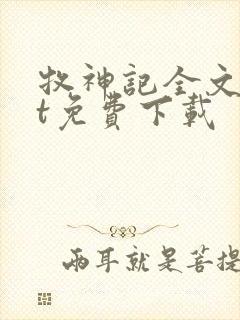 牧神記全文
t免費下載
兩耳就是菩提